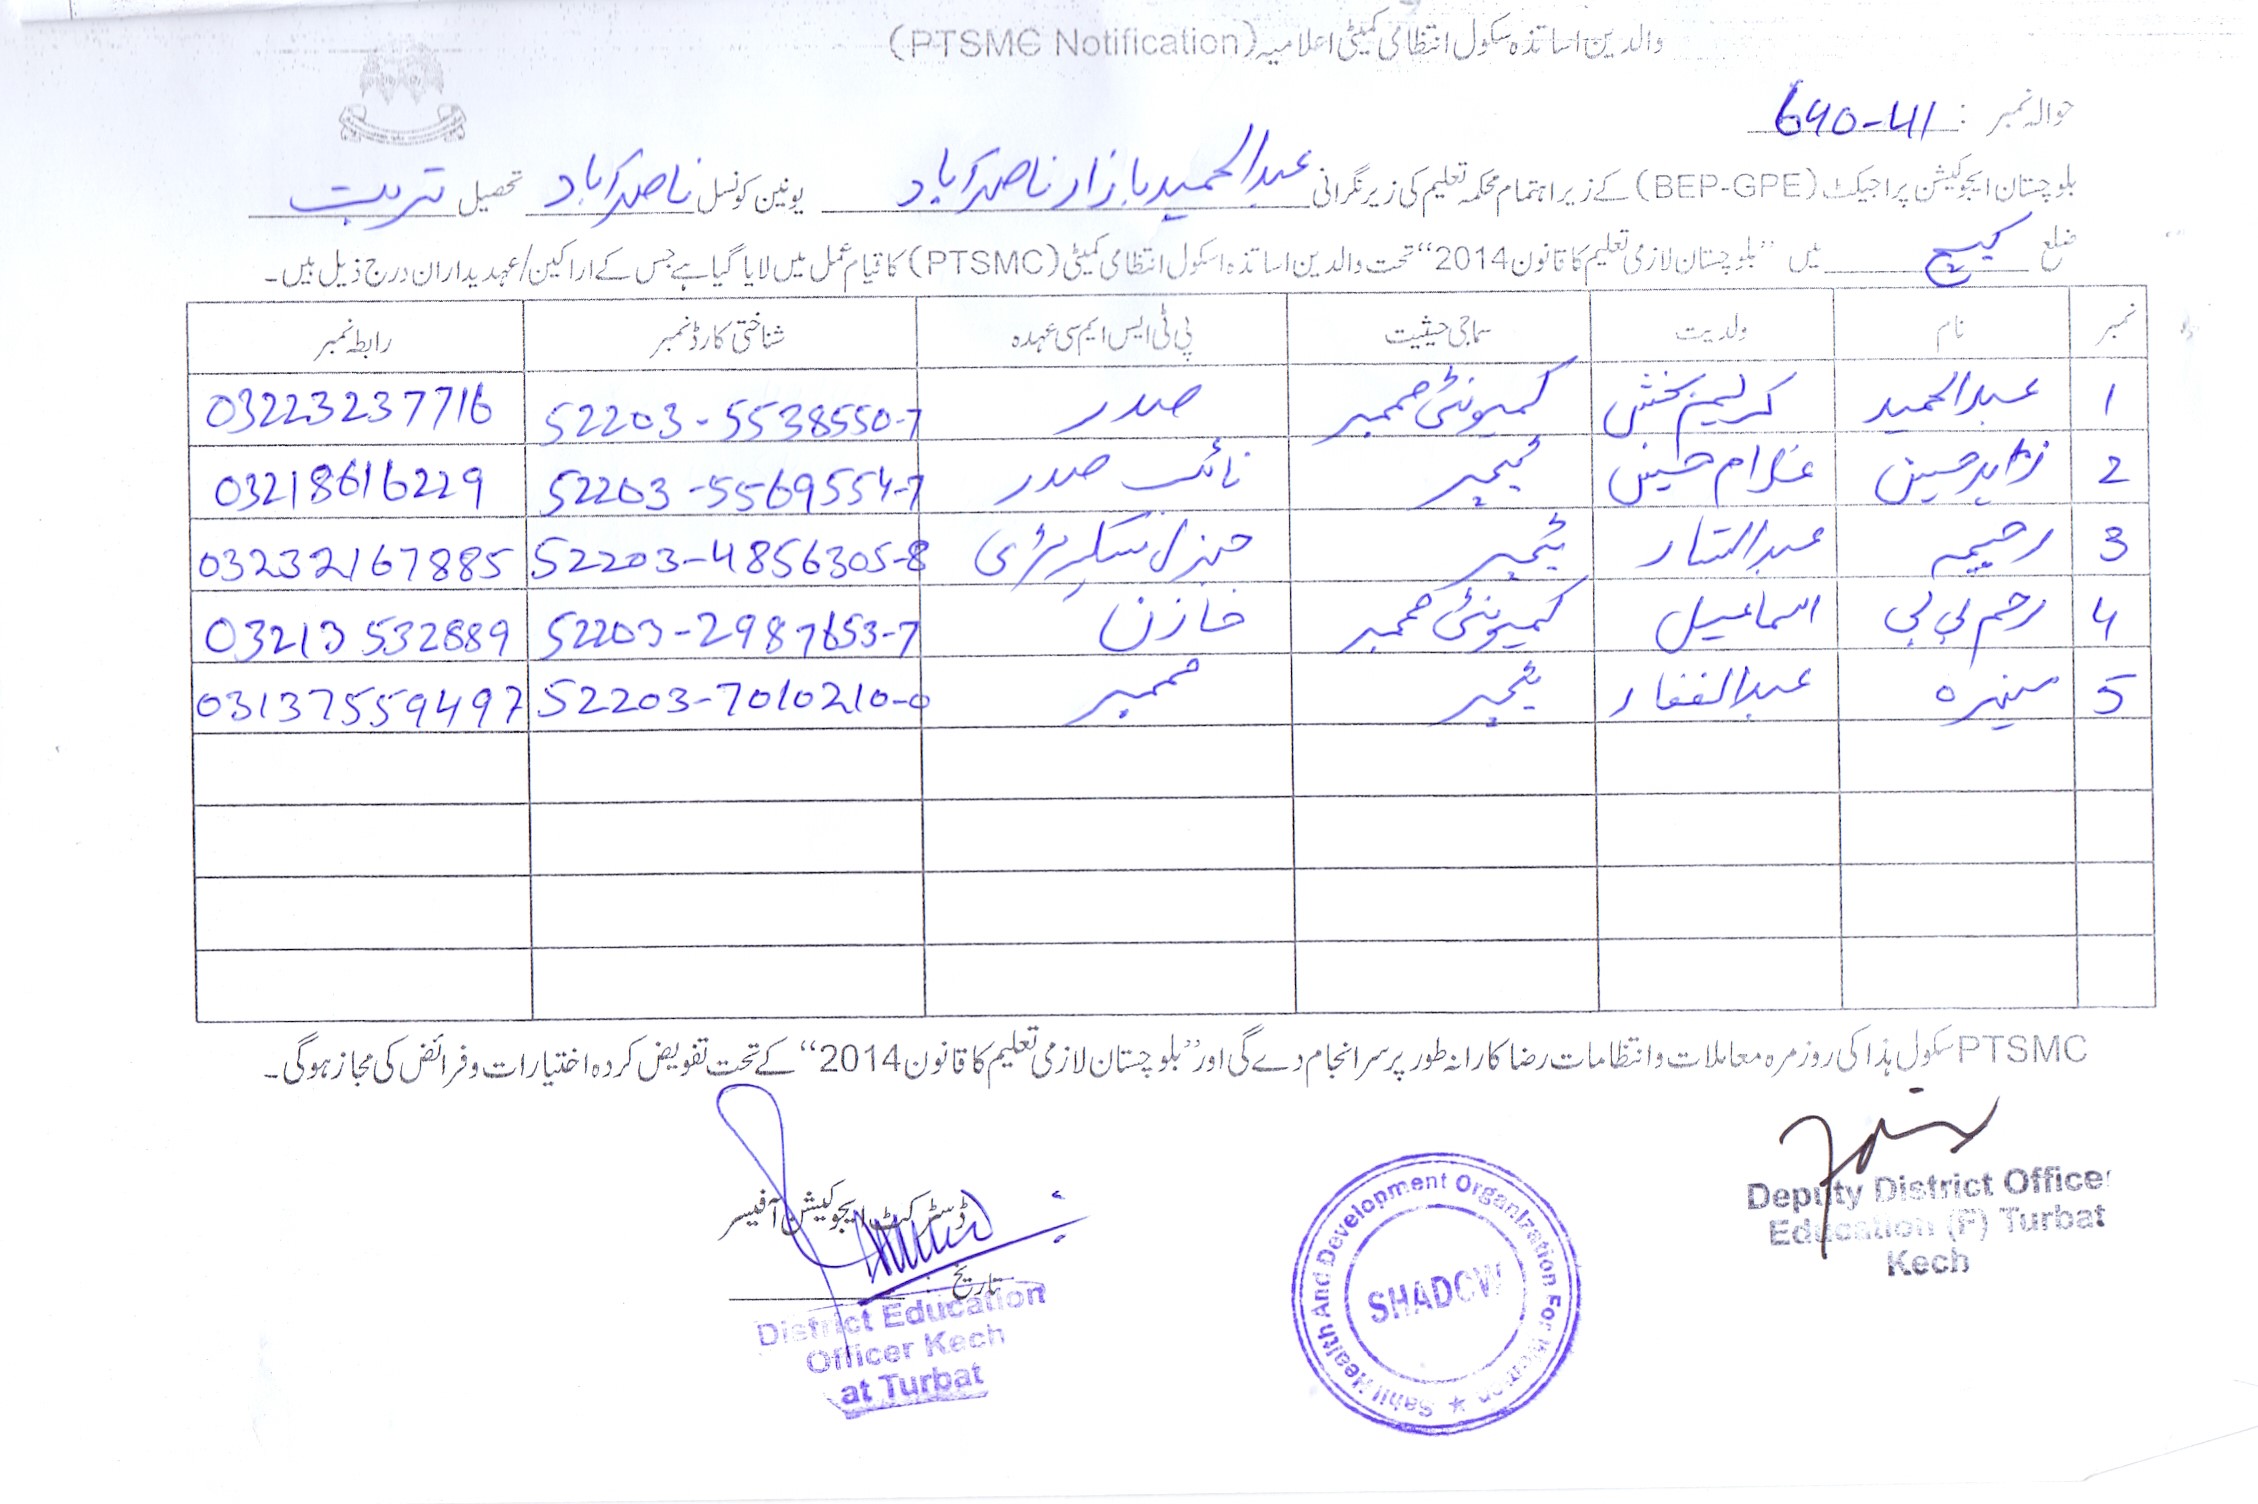 والدین اساتذہ سکول انتظامی کمیٹی اعلامیہ (PTSMC Notification)
حوالہ نمبر : 690-41
بلوچستان ایجوکیشن پراجیکٹ (BEP-GPE) کے زیر اہتمام محکمہ تعلیم کی زیر نگرانی عبدالحمید بازار ناصرآباد یونین کونسل ناصرآباد تحصیل تربت
ضلع کیچ میں ”بلوچستان لازمی تعلیم کا قانون 2014“ تحت والدین اساتذہ اسکول انتظامی کمیٹی (PTSMC) کا قیام عمل میں لایا گیا ہے جس کے اراکین/عہدیداران درج ذیل ہیں۔
نمبر نام ولدیت سماجی حیثیت پی ٹی ایس ایم سی عہدہ شناختی کارڈ نمبر رابطہ نمبر
1 عبدالحمید کریم بخش کمیونٹی ممبر صدر 52203-5538550-7 03223237716
2 زاہد حسین غلام حسین ٹیچر نائب صدر 52203-5569554-7 03218616229
3 رحیمہ عبدالستار ٹیچر جنرل سکریٹری 52203-4856305-8 03232167885
4 رحم بی بی اسماعیل کمیونٹی ممبر خازن 52203-2987653-7 03213532889
5 عبدالغفار ٹیچر ممبر 52203-7010210-0 031375559497
PTSMC سکول ہذا کی روزمرہ معاملات و انتظامات رضاکارانہ طور پر سرانجام دے گی اور ”بلوچستان لازمی تعلیم کا قانون 2014“ کے تحت تفویض کردہ اختیارات و فرائض کی مجاز ہوگی۔
Deputy District Officer
Education (F) Turbat
Kech
Sahil Health And Development Organization For Women
SHADOW
ڈسٹرکٹ ایجوکیشن آفیسر
تاریخ
District Education
Officer Kech
at Turbat